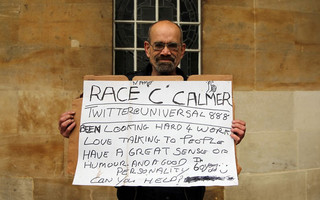 RACE "C" CALMER
TWITTER@UNIVERSAL888
BEEN LOOKING HARD 4 WORK
LOVE TALKING TO PEOPLE
HAVE A GREAT SENSE OF
HUMOUR AND A GOOD
PERSONALITY
CAN YOU HELP!